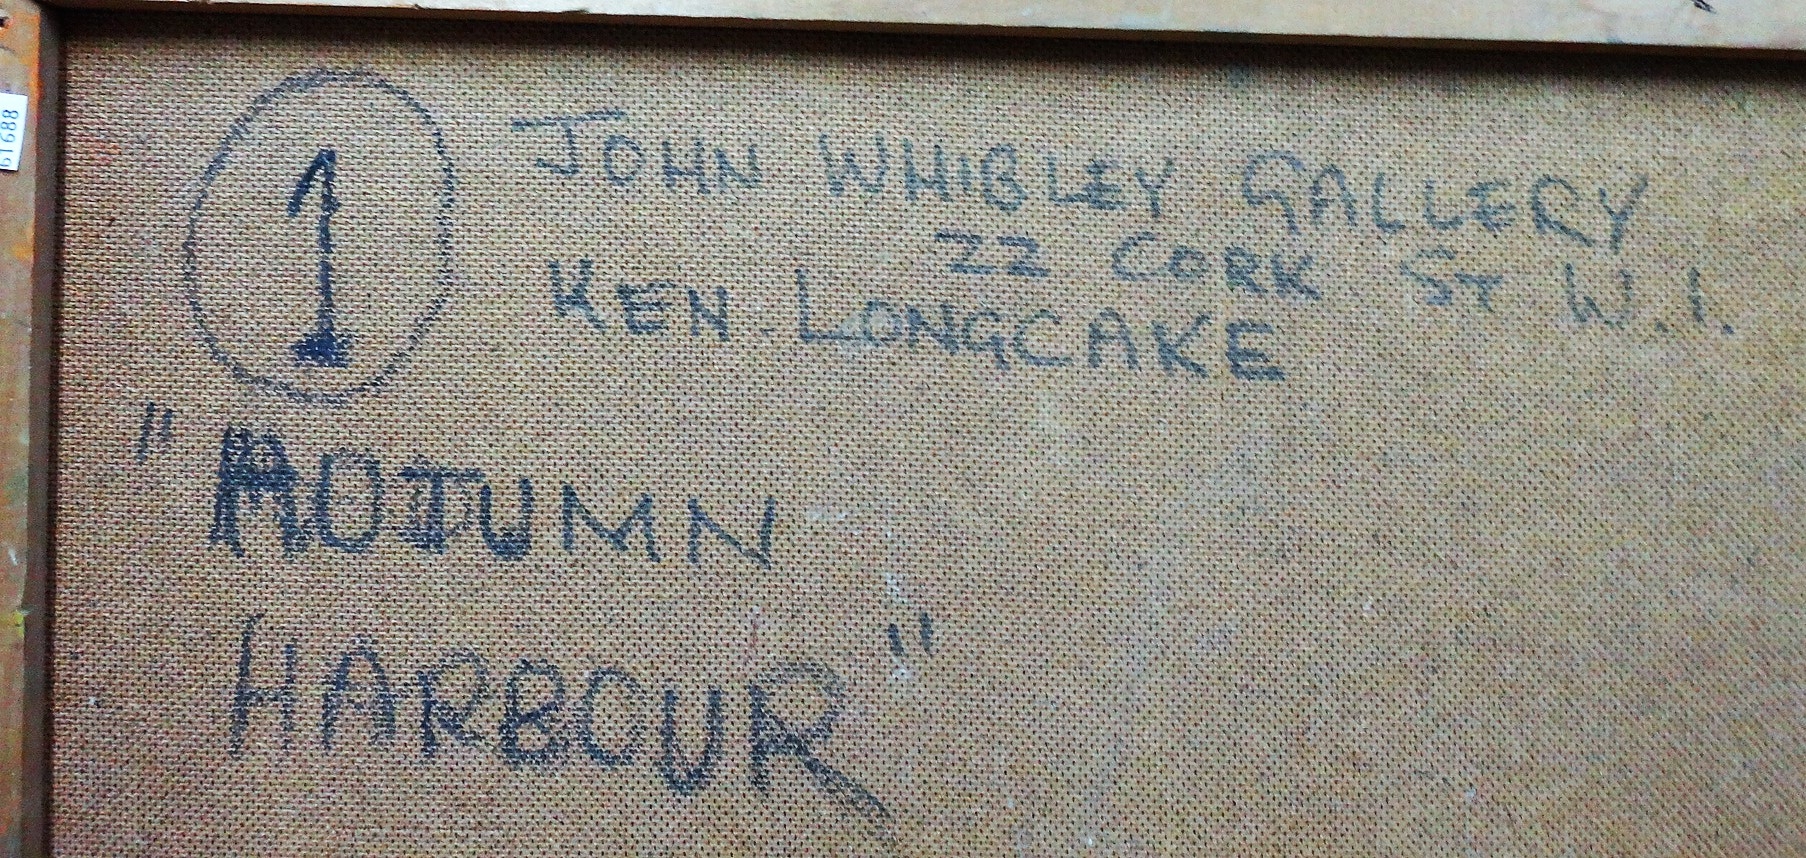 1
JOHN WHIBLEY GALLERY
22 CORK ST W.1.
KEN LONGCAKE
"AUTUMN
HARBOUR"
61688